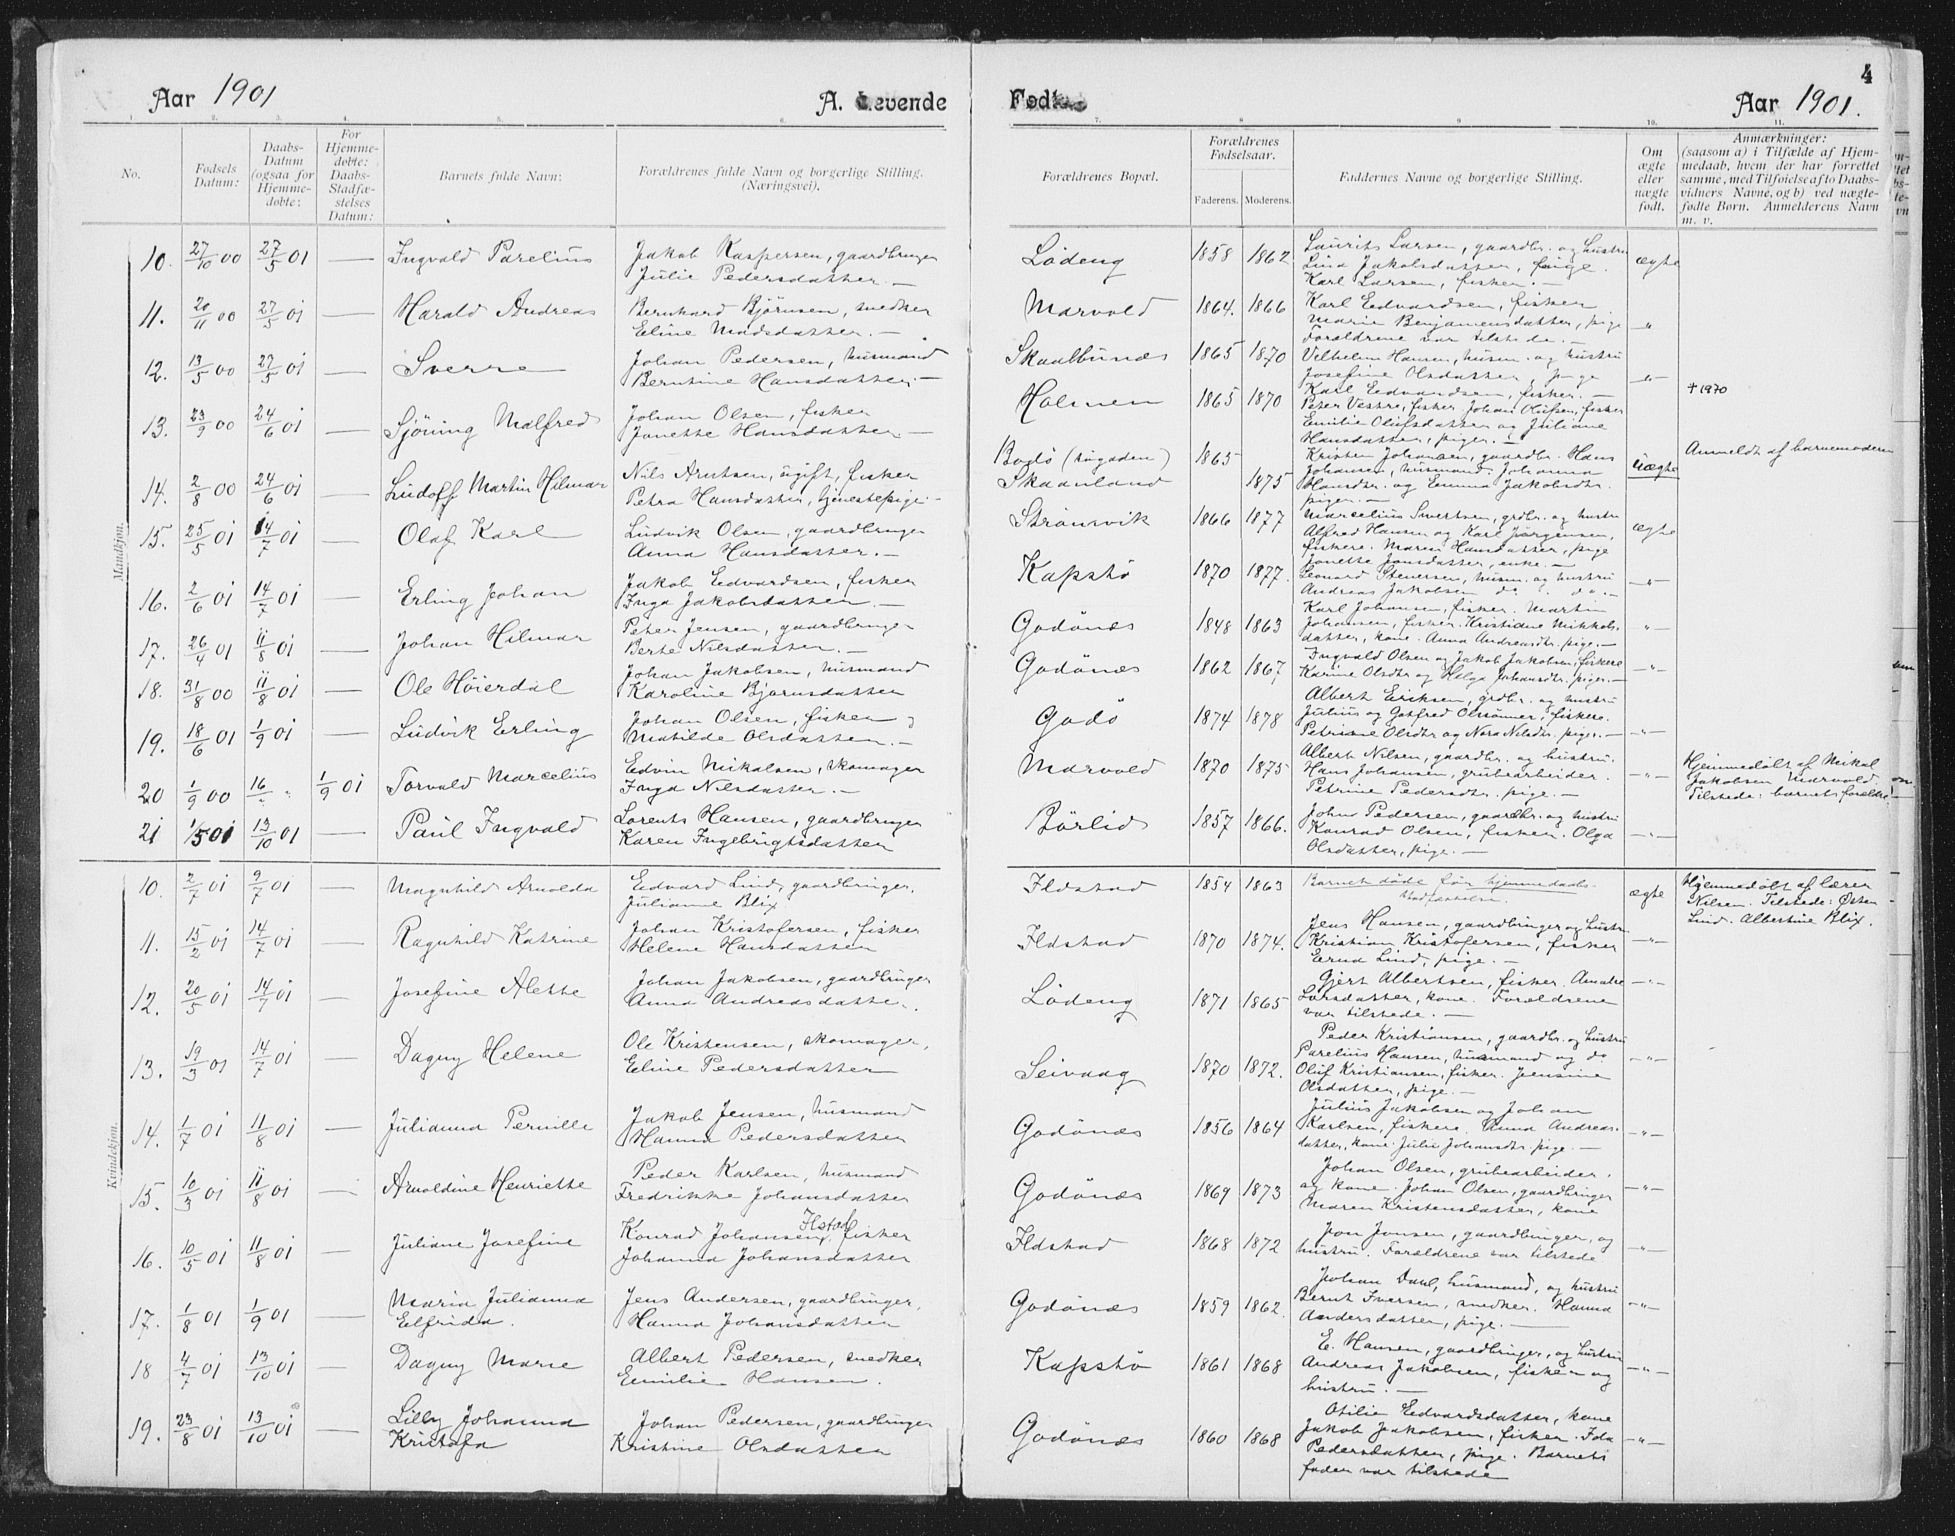 Aar 1901
A. Levende
Født
Aar 1901.
4
1. 2. 3. 4. 5. 6. 7. 8. 9. 10. 11.
No.
Fødsels Datum:
Daabs-Datum (ogsaa for Hjemmedøbte:
For Hjemmedøbte: Daabs-Stadfæstelses Datum:
Barnets fulde Navn:
Forældrenes fulde Navn og borgerlige Stilling.
(Næringsvei).
Forældrenes Bopæl.
Forældrenes Fødselsaar.
Faderens. Moderens.
Faddernes Navne og borgerlige Stilling.
Om ægte eller uægte født.
Anmærkninger:
(saasom a) i Tilfælde af Hjemmedaab, hvem der har forrettet samme, med Tilføielse af to Daabsvidners Navne, og b) ved uægtefødte Børn. Anmelderens Navn m. v.
Mandkjøn.
10. 27/10 00 27/5 01 — Ingvald Parelius
Jakob Kaspersen, gaardbruger
Julie Pedersdatter. —
Lødeng 1858 1862
Laurits Larsen, gaardbr. og hustru
Lina Jakobsdatter, pige.
Karl Larsen, fisker. —
ægte
11. 20/11 00 27/5 01 — Harald Andreas
Bernhard Bjørnsen, snedker
Eline Madsdatter. —
Marvold 1864. 1866
Karl Edvardsen, fisker
Marie Benjamensdatter, pige
Forældrene var tilstede. —
-"-
12. 13/5 00 27/5 01 — Sverre
Johan Pedersen, husmand
Berntine Hansdatter. —
Skaalbunes 1865 1870
Vilhelm Hansen, husm. og hustru
Josefine Olsdatter, pige
Karl Edvardsen, fisker. —
-"-
13. 23/9 00 24/6 01 — Sjøning Malfred
Johan Olsen, fisker
Janette Hansdatter. —
Holmen 1865 1870
Peter Vestre, fisker Johan Olufsen, fisker
Emilie Olufsdatter og Juliane
Hansdatter, piger. —
+ 1970
14. 2/8 00 24/6 01 — Ludolf Martin Hilmar
Nils Arntsen, ugift, fisker
Petra Hansdatter, tjenestepige. —
Bodø (søgaden) 1865
Skaanland 1875
Kristen Johansen, gaardbr. Hans
Johansen, husmand. Johanna
Hansdtr. og Emma Jakobsdtr.
piger. —
uægte
Anmeldt af barnemoderen
15. 25/5 01 14/7 01 — Olaf Karl
Ludvik Olsen, gaardbruger
Anna Hansdatter. —
Strømsvik 1866 1877
Marcelius Sivertsen, grdbr. og hustru
Alfred Hansen og Karl Jørgensen,
fiskere. Maren Hansdatter, pige
ægte
16. 2/6 01 14/7 01 — Erling Johan
Jakob Edvardsen, fisker
Inga Jakobsdatter. —
Kapstø 1870 1877.
Janette Jonsdatter, enke. —
Leonard Stenersen, husm. og hustru
Andreas Jakobsen do. do. —
-"-
17. 26/4 01 11/8 01 — Johan Hilmar
Peter Jensen, gaardbruger
Berte Nilsdatter. —
Godønes 1848 1863
Karl Johansen, fisker. Martin
Johansen, fisker. Kristiane Mikkelsdatter, kone. Anna Andreasdtr. pige. —
-"-
18. 31/8 00 11/8 01 — Ole Høierdal
Johan Jakobsen, husmand
Karoline Bjørnsdatter
Godønes 1862 1867
Ingvald Olsen og Jakob Jakobsen, fiskere
Karine Olsdtr og Helga Johansdtr. piger. —
-"-
19. 18/6 01 1/9 01 — Ludvik Erling
Johan Olsen, fisker
Matilde Olsdatter. —
Godø 1874 1878
Albert Eriksen, grdbr. og hustru
Julius og Gotfred Olssønner, fiskere.
Petrine Olsdtr og Nora Nilsdtr. piger. —
-"-
20 1/9 00 16/" " 1/9 01 Torvald Marcelius
Edvin Mikalsen, skomager
Inga Nilsdatter. —
Marvold 1870 1875
Albert Nilsen, gaardbr. og hustru.
Hans Johansen, grubearbeider.
Petrine Pedersdtr. pige. —
-"-
Hjemmedøbt af Mikal
Jakobsen Marvold
Tilstede: barnets forældre
21 1/5 01 13/10 01 — Paul Ingvald
Lorents Hansen, gaardbruger
Karen Ingebrigtsdatter
Børlid 1857 1866.
John Pedersen, gaardbr. og hustru
Konrad Olsen, fisker. Olga
Olsdatter, pige. —
-"-
Kvindekjøn.
10. 2/7 01 9/7 01 — Magnhild Arnolda
Edvard Lind, gaardbruger,
Julianne Blix
Ildstad 1854 1863
Barnet døde før hjemmedaabs-
stadfæstelsen.
ægte
Hjemmedøbt af lærer
Nilsen. Tilstede: Østen
Lind. Albertine Blix.
11. 15/2 01 14/7 01 — Ragnhild Katrine
Johan Kristofersen, fisker
Helene Hansdatter
Ildstad 1870 1874.
Jens Hansen, gaardbruger og hustru
Kristian Kristofersen, fisker
Erna Lind, pige. —
-"-
12. 20/5 01 14/7 01 — Josefine Alette
Johan Jakobsen, gaardbruger
Anna Andreasdatter.
Lødeng 1871 1865
Gjert Albertsen, fisker. Amalie
Larsdatter, kone. Forældrene
var tilstede. —
-"-
13. 19/3 01 14/7 01 — Dagny Helene
Ole Kristensen, skomager,
Eline Pedersdatter
Seivaag 1870 1872.
Peder Kristiansen, gaardbr. og hustru
Parelius Hansen, husmand og do
Oluf Kristiansen, fisker. Jensine
Olsdatter, pige. —
-"-
14. 1/7 01 11/8 01 — Julianna Pernille
Jakob Jensen, husmand
Hanna Pedersdatter
Godønes 1856 1864
Julius Jakobsen og Johan
Karlsen, fiskere. Anna Andreasdatter, kone. Julie Johansdtr. pige. —
-"-
15. 10/3 01 11/8 01 — Arnoldine Henriette
Peder Karlsen, husmand
Fredrikke Johansdatter
Godønes 1869 1873
Johan Olsen, grubearbeider.
og kone. Johan Olsen, gaardbruger
Maren Kristensdatter, kone
-"-
16. 10/5 01 11/8 01 — Juliane Josefine
Konrad Johansen, Ilstad fisker
Johanna Johansdatter
Ildstad 1868 1872
Jon Jonsen, gaardbruger, og
hustru. Forældrene var tilstede
-"-
17. 1/8 01 1/9 01 — Maria Julianna
Elfrida.
Jens Andersen, gaardbruger,
Hanna Johansdatter
Godønes 1859 1862.
Johan Dahl, husmand, og hustru
Bernt Iversen, snedker. Hanna
Andersdatter, pige. —
-"-
18 4/7 01 13/10 01 — Dagny Marie
Albert Pedersen, snedker
Emilie Hansen.
Kapstø 1861 1868
E. Hansen, gaardbruger, og hustru
Andreas Jakobsen, fisker og
hustru. —
-"-
19. 23/8 01 13/10 01 — Lilly Johanna
Kristofa
Johan Pedersen, gaardbruger
Kristine Olsdatter
Godønes 1860 1868
Otilie Edvardsdatter, kone
Jakob Jakobsen, fisker. Ida
Pedersdatter, pige. Barnets
fader var tilstede
-"-